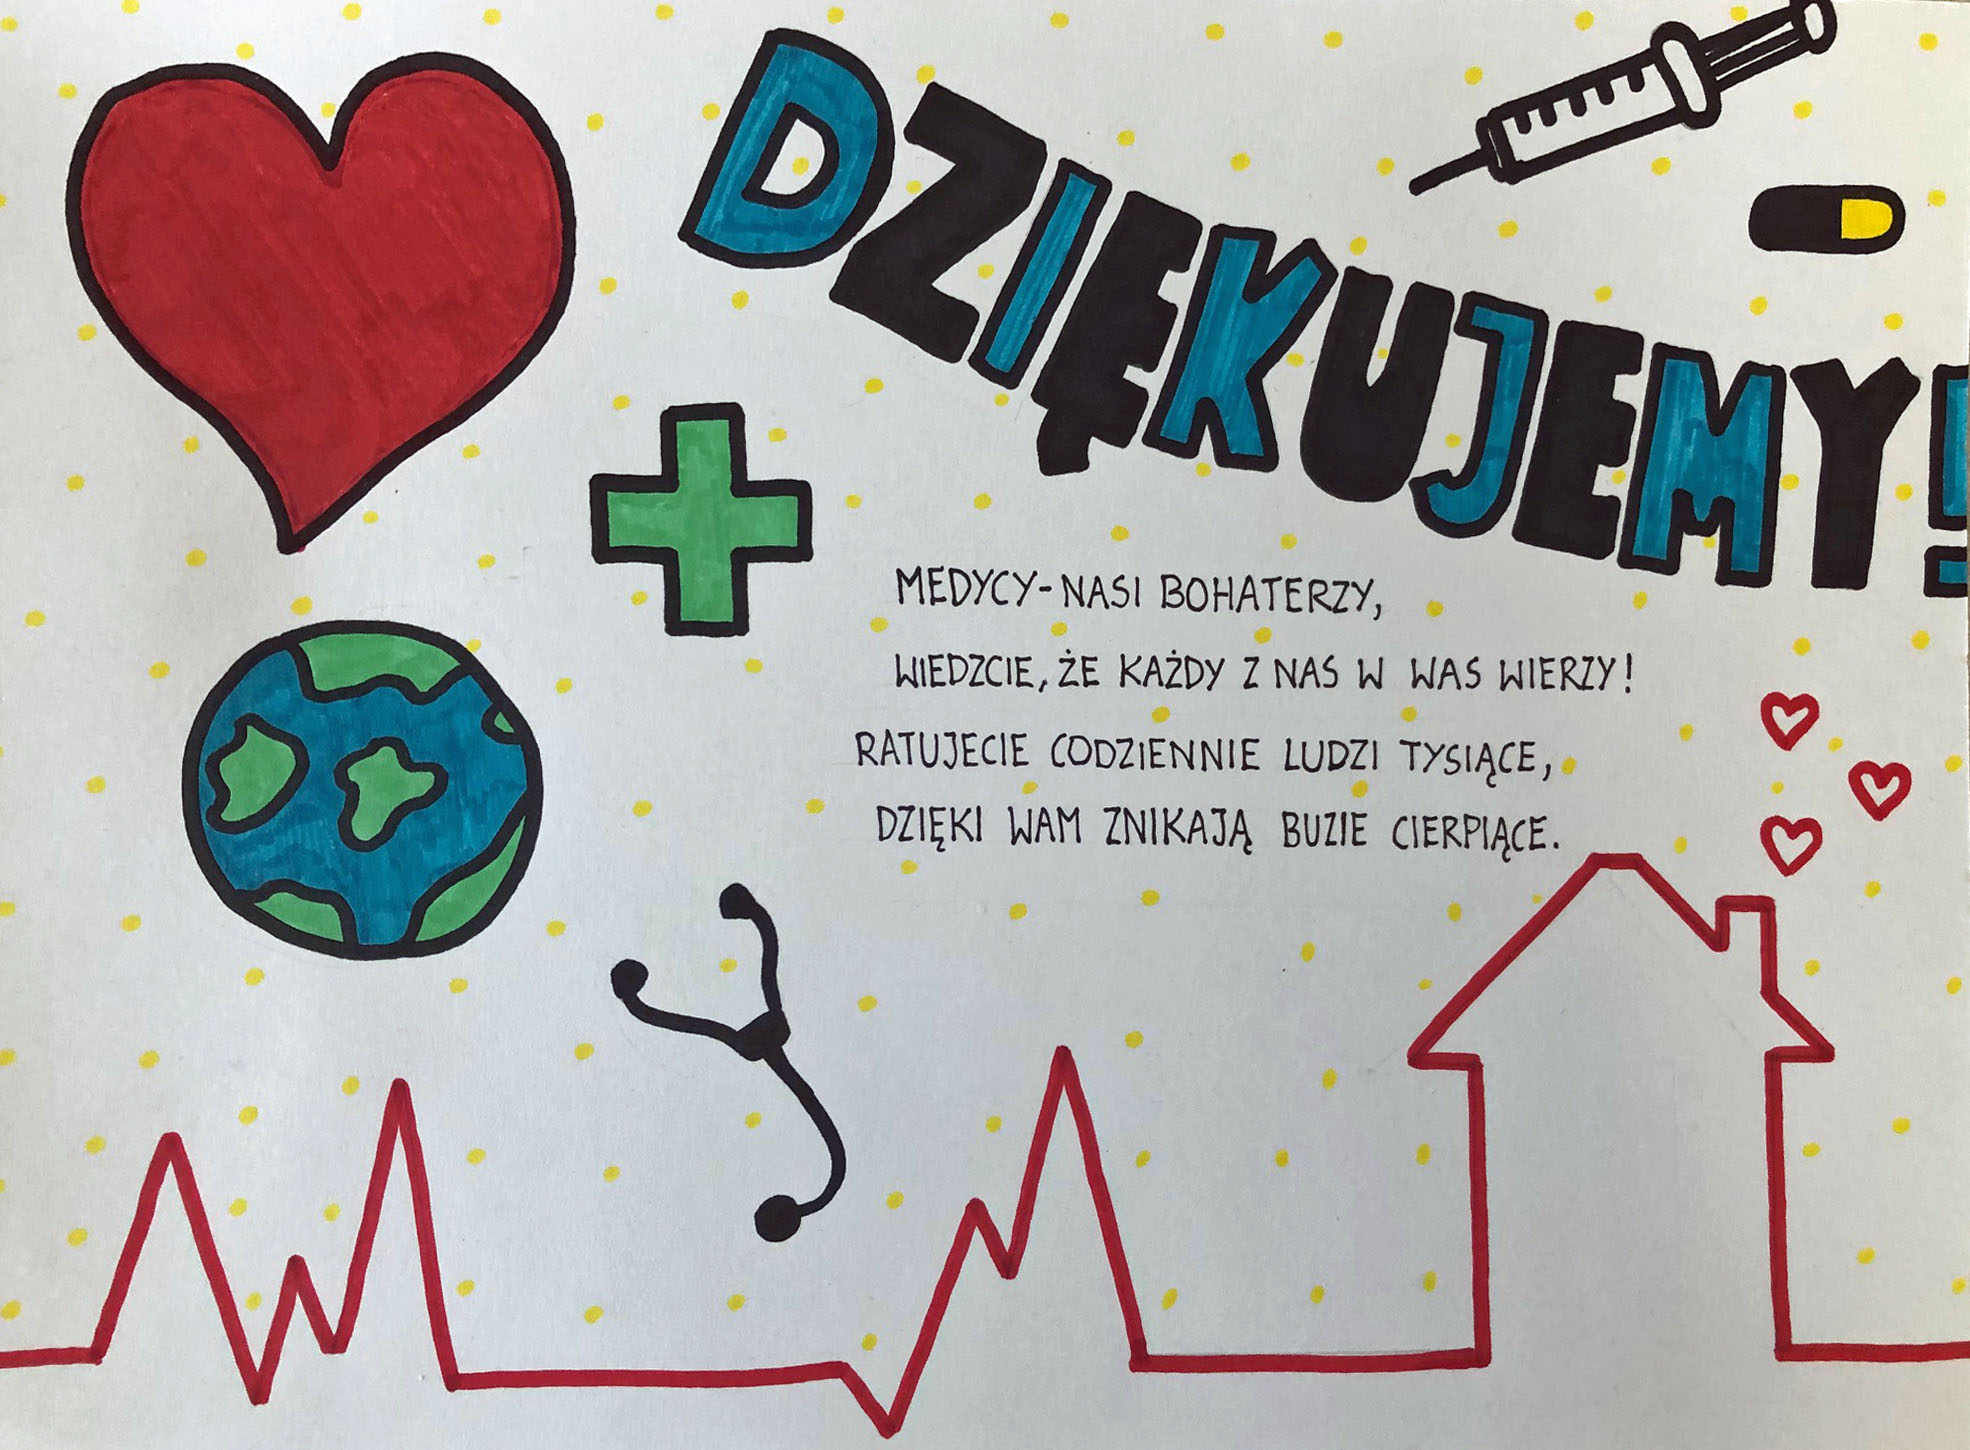 DZIĘKUJEMY!
MEDYCY-NASI BOHATERZY,
WIEDZCIE, ŻE KAŻDY Z NAS W WAS WIERZY!
RATUJECIE CODZIENNIE LUDZI TYSIĄCE,
DZIĘKI WAM ZNIKAJĄ BUZIE CIERPIĄCE.